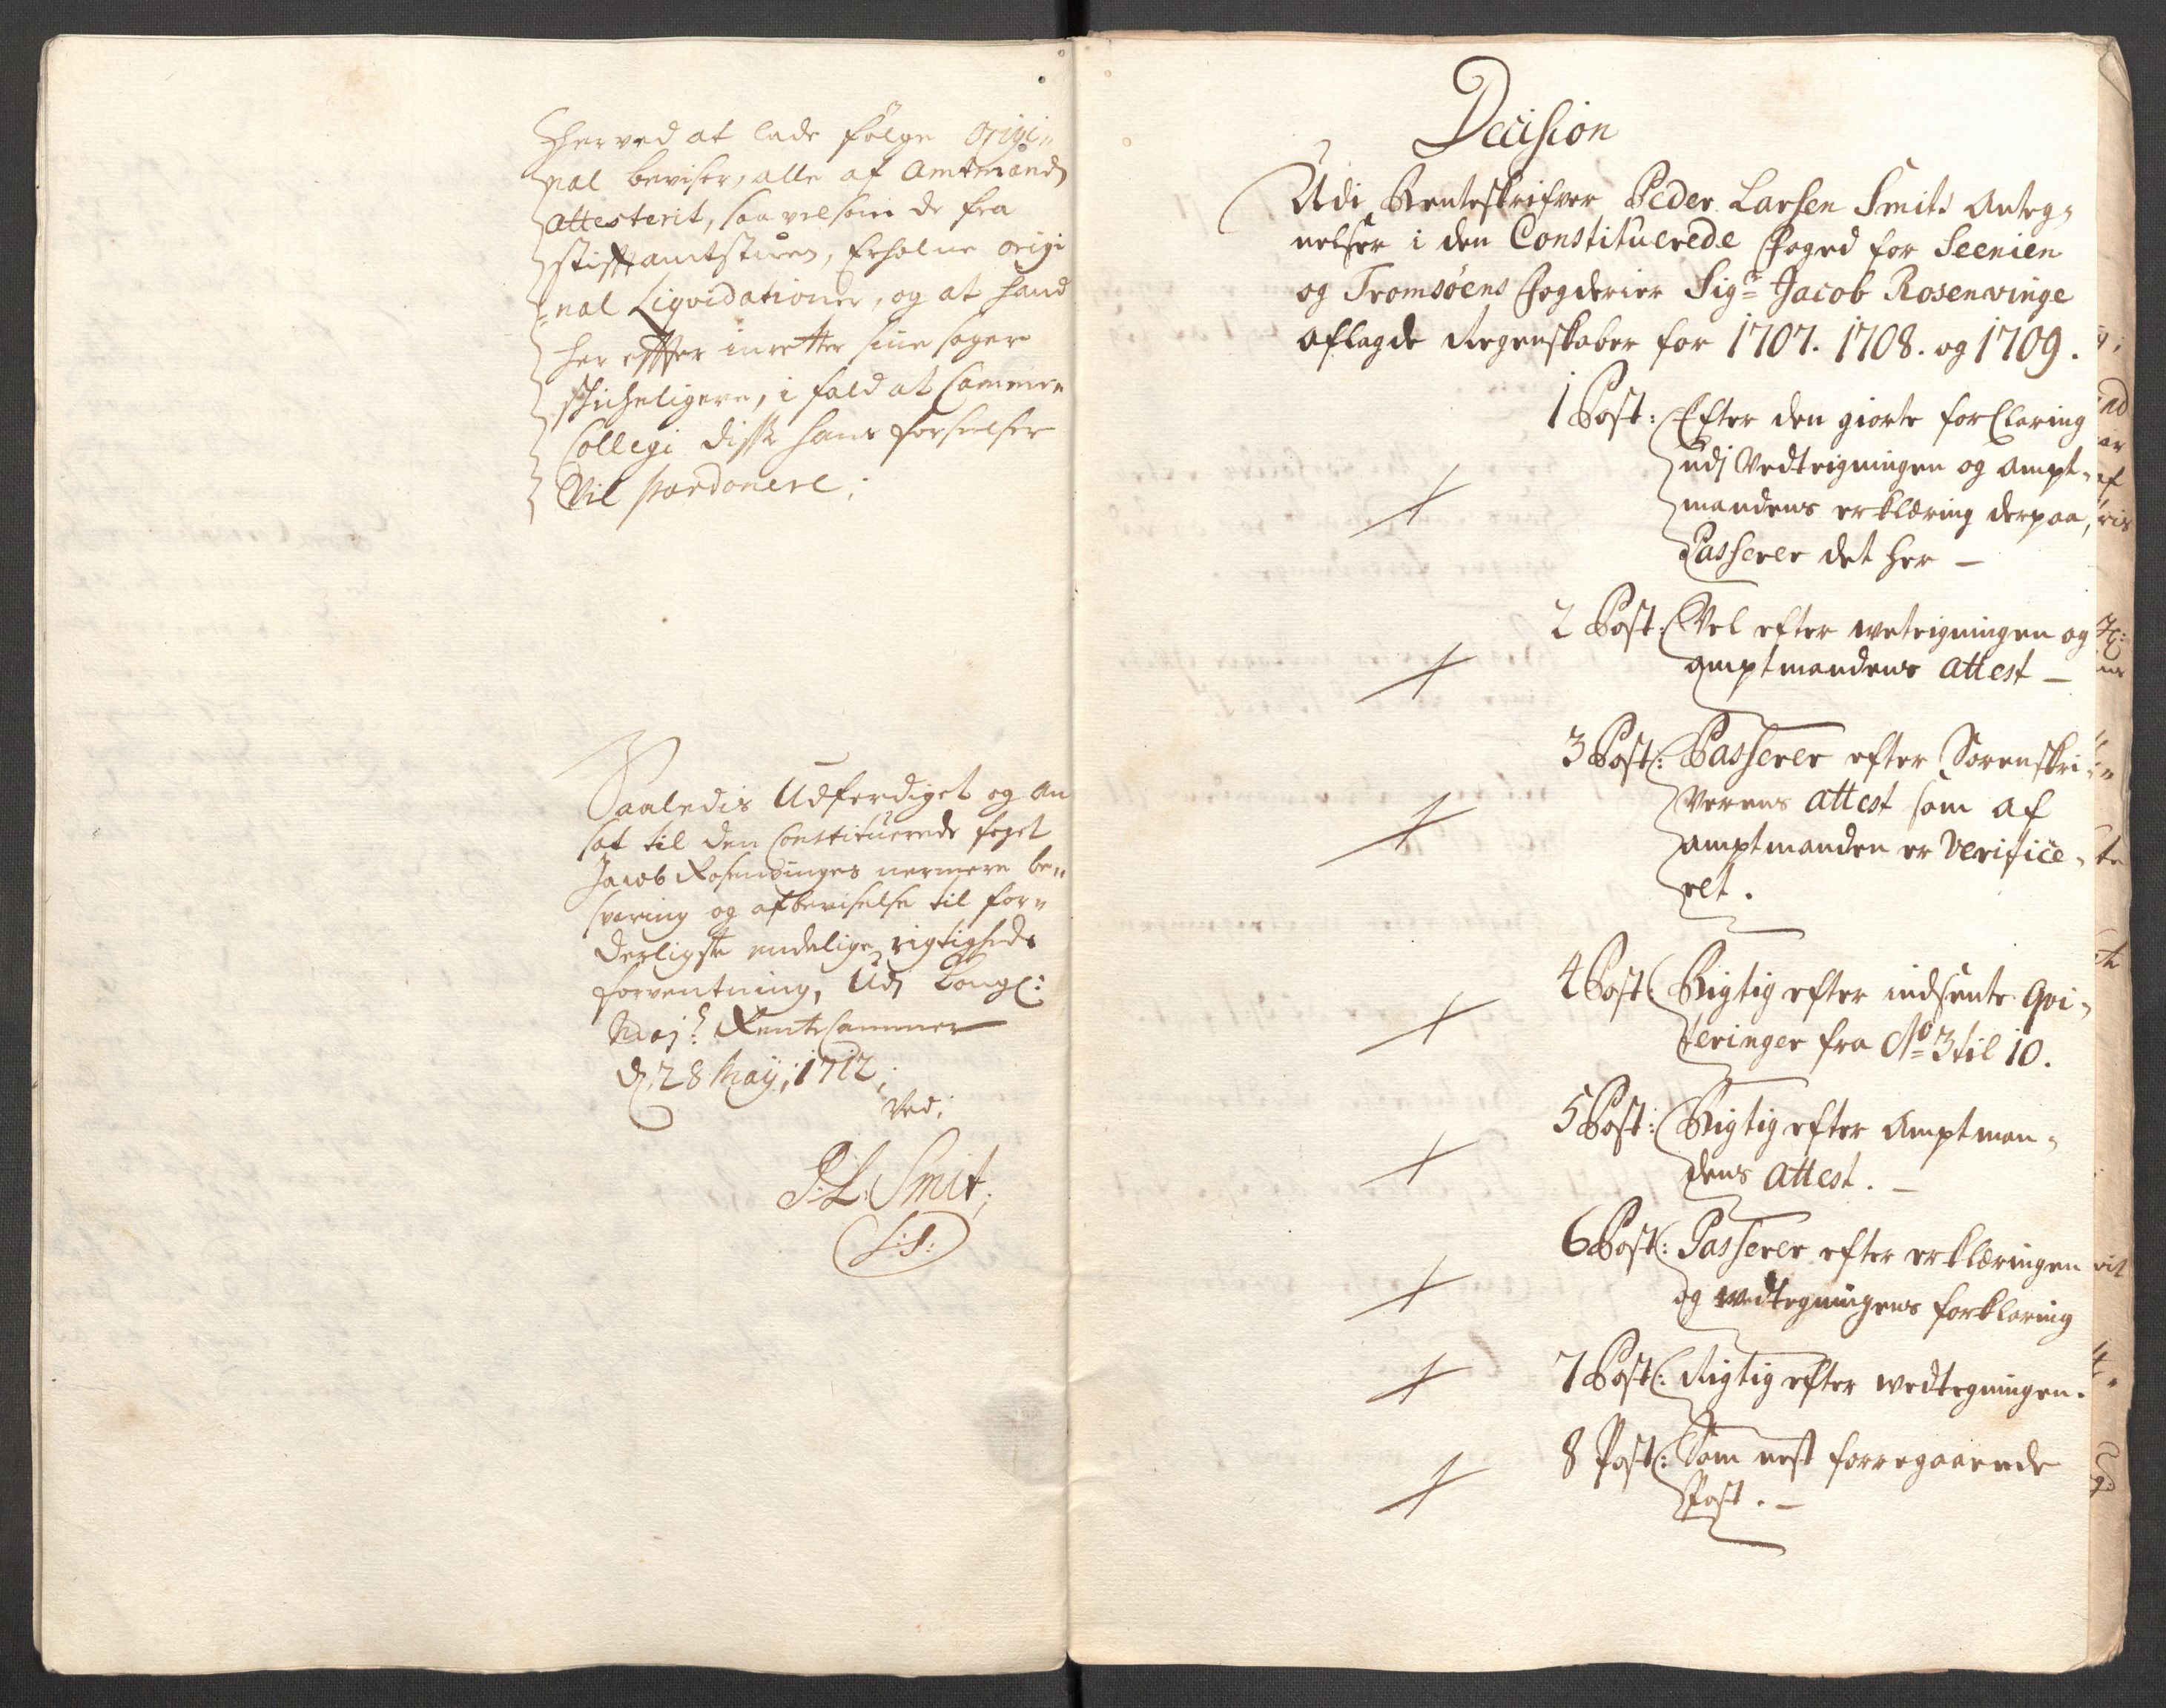 Herved at lade følge Origi„
nal beviser, alle af Amtmand
attesterit, saa velsom de fra
stiftamtstuen, Erholne origi
„nal Liqvidationer, og at hand
her effter inretter sine sager
skicheligere, i fald at Cammer„
Collegi disse hans forseelser
Vil pardonere;
Saaledis Udferdiget og an
sat til den Constituerede foget
Jacob Rosenvinges nermere be„
svaring og afbeviselse til for„
derligste endelige rigtigheds
forventning, Udj Kongl:
Maj:s Rentecammer
d. 28 Maij; 1712;
Ved;
P: L: Smit;
L: S:
Decision
Udi Renteskrifver Peder Larsen Smits Anteg„
nelser i den Constituerede Foged for Seenien
og Tromsøens Fogderier Sigr Jacob Rosenvinge
aflagde Regenskaber for 1707. 1708. og 1709.
1 Post: Efter den giorte forClaring
udj Vedteigningen og Ampt„
mandens erklæring derpaa,
Passerer det her –
2 Post: Vel efter weteigningen og
amptmandens attest –
3 Post: Passerer efter Sorenskri„
Verens attest som af
amptmanden er Verifice„
ret.
4 Post: Rigtig efter indsente Qvi„
teringer fra No 3 til 10.
5 Post: Rigtig efter Amptman„
dens attest. –
6 Post: Passerer efter erklæringen
og wedtegningens forklaring
7 Post: Rigtig efter wedtegningen.
8 Post: Som nest forregaaende
Post. –